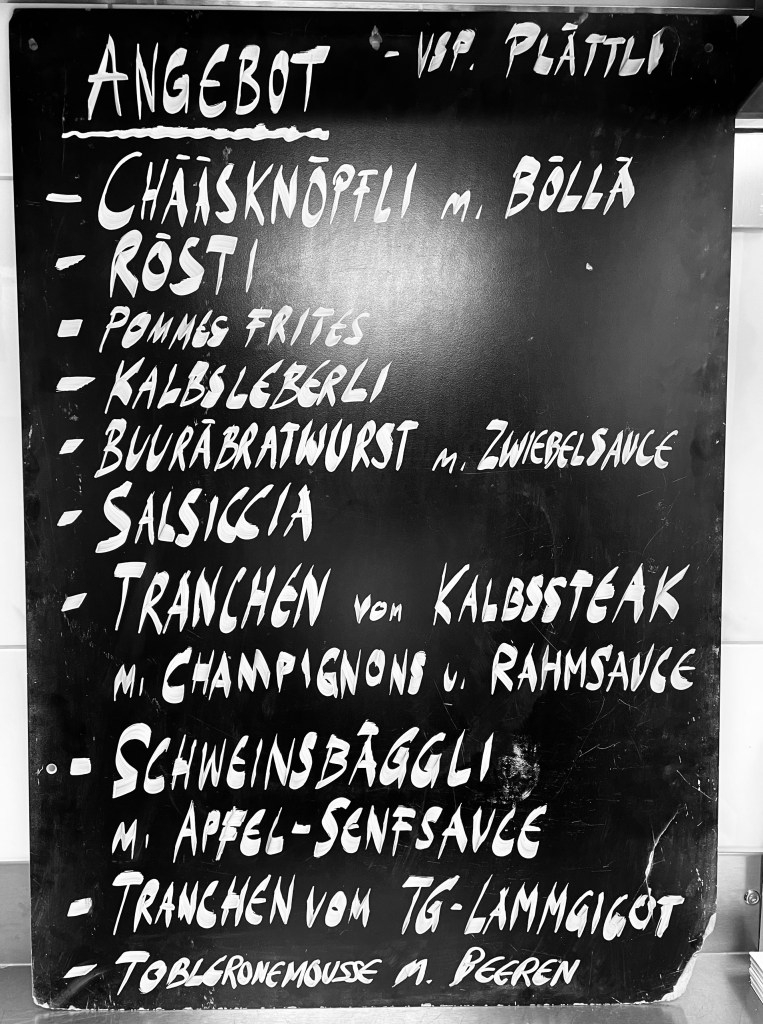 ANGEBOT
- VSP. PLÄTTLI
- CHÄÄSKNÖPFLI m. BÖLLÄ
- RÖSTI
- POMMES FRITES
- KALBSLEBERLI
- BUURÄBRATWURST m. ZWIEBELSAUCE
- SALSICCIA
- TRANCHEN vom KALBSSTEAK
m. CHAMPIGNONS u. RAHMSAUCE
- SCHWEINSBÄGGLI
m. APFEL-SENFSAUCE
- TRANCHEN vom TG-LAMMGIGOT
- TOBLERONEMOUSSE m. BEEREN